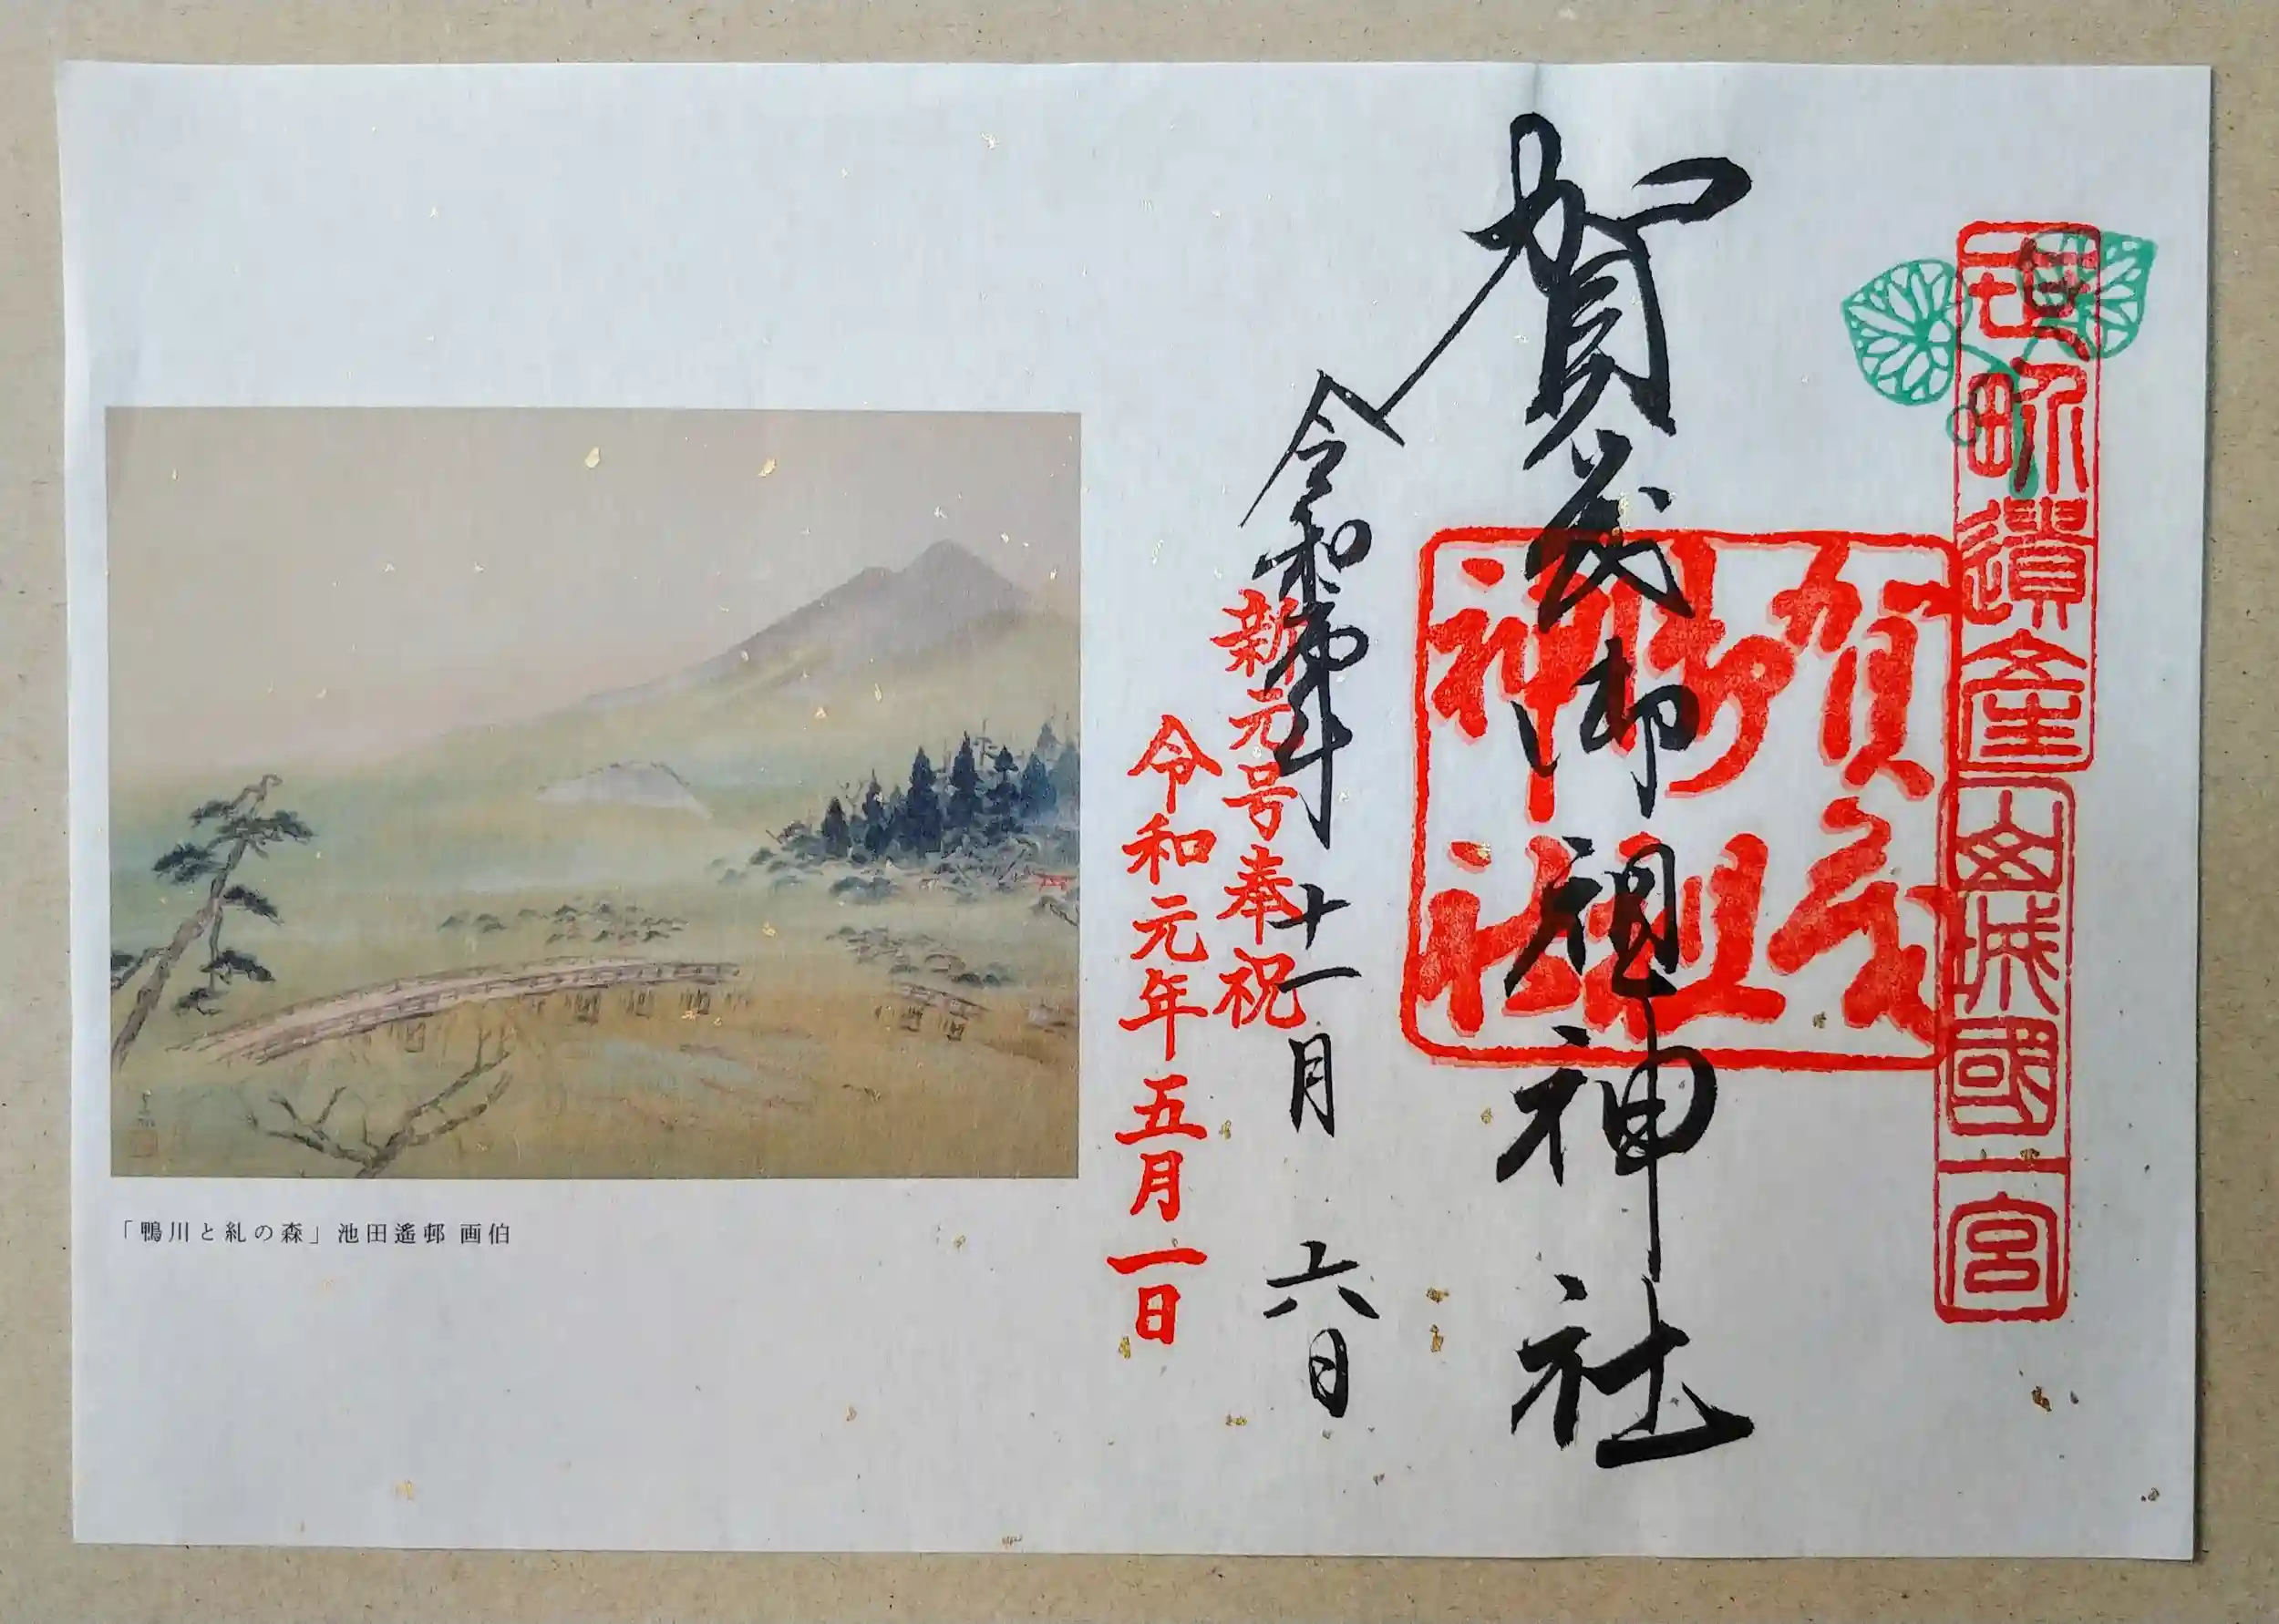 世界遺産
山城國一宮
賀茂御祖神社
賀茂
御祖
神社
令和元年十一月六日
新元号奉祝
令和元年五月一日
「鴨川と糺の森」池田遙邨 画伯